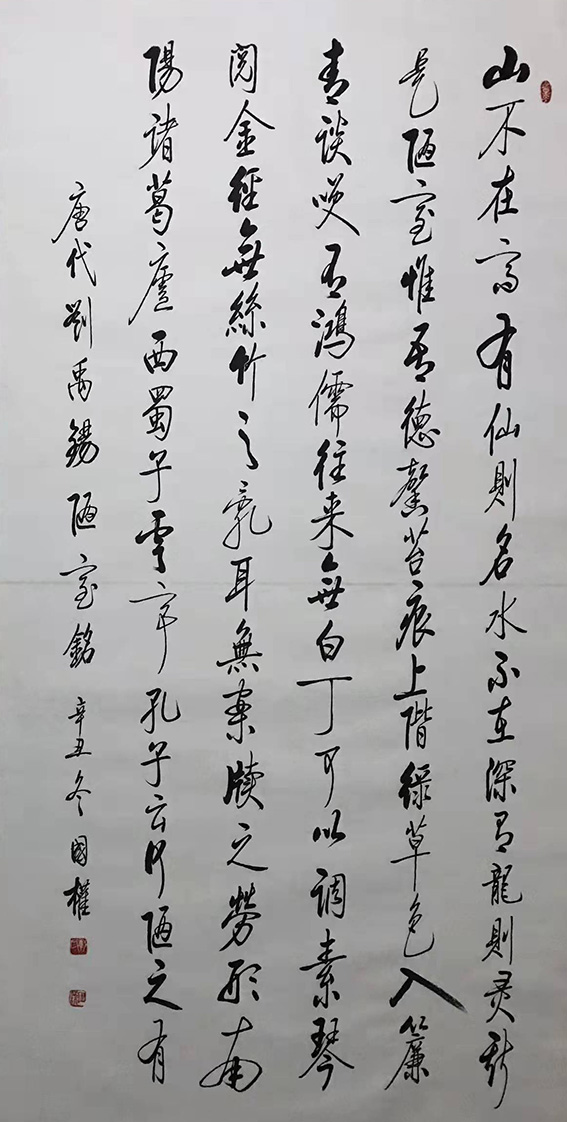 山不在高有仙則名水不在深有龍則灵斯
是陋室惟吾德馨苔痕上階緑草色入簾
青談咲有鴻儒往来無白丁可以调素琴
閲金經無絲竹之亂耳無案牘之勞形南
陽諸葛廬西蜀子雲亭孔子云何陋之有
唐代劉禹錫陋室銘 辛丑冬國權